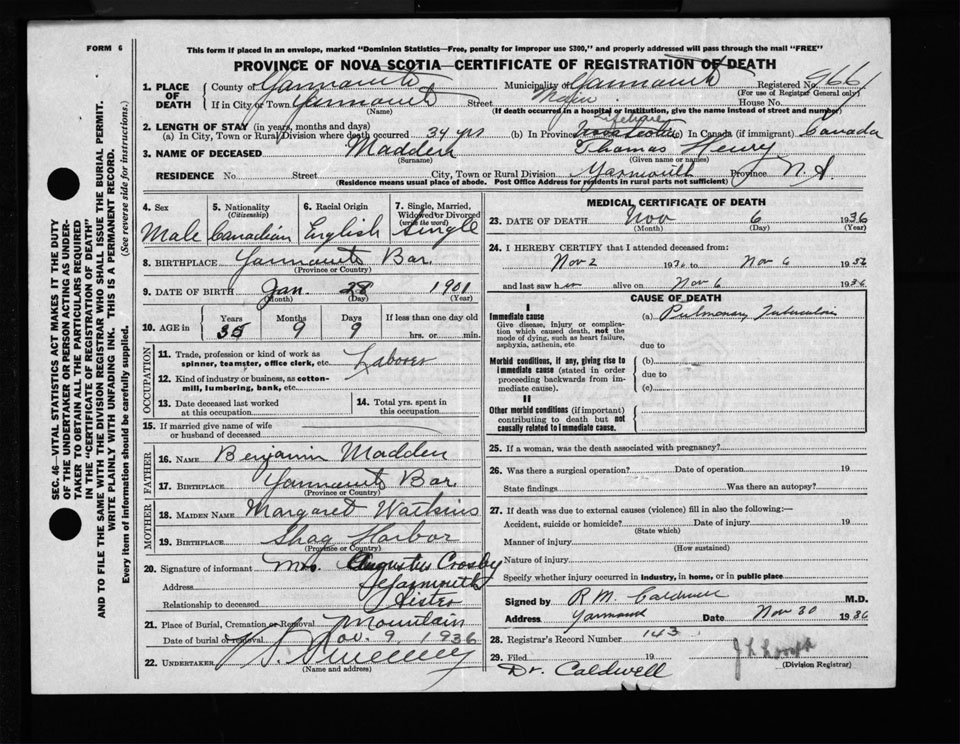 FORM 6
This form if placed in an envelope, marked "Dominion Statistics—Free, penalty for improper use $300," and properly addressed will pass through the mail "FREE"
PROVINCE OF NOVA SCOTIA—CERTIFICATE OF REGISTRATION OF DEATH
1. PLACE OF DEATH County of Yarmouth Municipality of Yarmouth Registered No.
(For use of Registrar General only)
If in City or Town Yarmouth Street House No.
(Name) (If death occurred in a hospital or institution, give the name instead of street and number)
2. LENGTH OF STAY (in years, months and days)
(a) In City, Town or Rural Division where death occurred 34 yrs (b) In Province Lifetime Nova Scotia (c) In Canada (if immigrant) Canada
3. NAME OF DECEASED Madden Thomas Henry
(Surname) (Given name or names)
RESIDENCE No. Street City, Town or Rural Division Yarmouth Province N.S.
(Residence means usual place of abode. Post Office Address for residents in rural parts not sufficient)
4. Sex 5. Nationality (Citizenship) 6. Racial Origin 7. Single, Married, Widowed or Divorced (write the word)
Male Canadian English Single
8. BIRTHPLACE Yarmouth Bar
(Province or Country)
9. DATE OF BIRTH Jan. 28 1901
(Month) (Day) (Year)
10. AGE in Years Months Days If less than one day old
35 9 9 hrs. or min.
OCCUPATION
11. Trade, profession or kind of work as spinner, teamster, office clerk, etc. Laborer
12. Kind of industry or business, as cotton-mill, lumbering, bank, etc.
13. Date deceased last worked at this occupation 14. Total yrs. spent in this occupation
15. If married give name of wife or husband of deceased
FATHER
16. NAME Benjamin Madden
17. BIRTHPLACE Yarmouth Bar
(Province or Country)
MOTHER
18. MAIDEN NAME Margaret Watkins
19. BIRTHPLACE Shag Harbor
(Province or Country)
20. Signature of informant Mrs. Augustus Crosby
Address Yarmouth
Relationship to deceased Sister
21. Place of Burial, Cremation or Removal Mountain
Date of burial or removal Nov. 9, 1936
22. UNDERTAKER Sweeney
(Name and address)
MEDICAL CERTIFICATE OF DEATH
23. DATE OF DEATH Nov 6 1936
(Month) (Day) (Year)
24. I HEREBY CERTIFY that I attended deceased from:
Nov 2 1936 to Nov 6 1936
and last saw him alive on Nov 6 1936
CAUSE OF DEATH
I
Immediate cause (a) Pulmonary Tuberculosis
Give disease, injury or complication which caused death, not the mode of dying, such as heart failure, asphyxia, asthenia, etc.
due to
Morbid conditions, if any, giving rise to immediate cause (stated in order proceeding backwards from immediate cause).
(b)
due to
(c)
II
Other morbid conditions (if important) contributing to death but not causally related to immediate cause.
25. If a woman, was the death associated with pregnancy?
26. Was there a surgical operation? Date of operation 19
State findings Was there an autopsy?
27. If death was due to external causes (violence) fill in also the following:—
Accident, suicide or homicide? Date of injury 19
(State which)
Manner of injury
(How sustained)
Nature of injury
Specify whether injury occurred in industry, in home, or in public place
Signed by R.M. Caldwell M.D.
Address Yarmouth Date Nov 30 1936
28. Registrar's Record Number 143
29. Filed 19
(Division Registrar)
Dr. Caldwell
SEC. 46—VITAL STATISTICS ACT MAKES IT THE DUTY
OF THE UNDERTAKER OR PERSON ACTING AS UNDER-
TAKER TO OBTAIN ALL THE PARTICULARS REQUIRED
IN THE "CERTIFICATE OF REGISTRATION OF DEATH"
AND TO FILE THE SAME WITH THE DIVISION REGISTRAR WHO SHALL ISSUE THE BURIAL PERMIT.
WRITE PLAINLY WITH UNFADING INK. THIS IS A PERMANENT RECORD.
Every item of information should be carefully supplied. (See reverse side for instructions.)